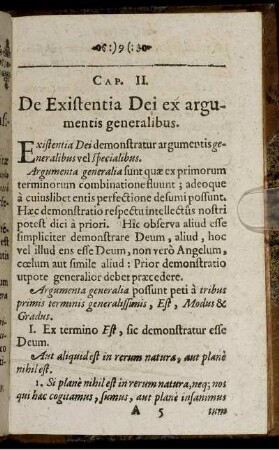 :)9(:
CAP. II.
De Existentia Dei ex argu-
mentis generalibus.
Existentia Dei demonstratur argumentis ge-
neralibus vel specialibus.
Argumenta generalia sunt quæ ex primorum
terminorum combinatione fluunt; adeoque
à cuiuslibet entis perfectione desumi possunt.
Hæc demonstratio respectu intellectûs nostri
potest dici à priori. Hîc observa aliud esse
simpliciter demonstrare Deum, aliud, hoc
vel illud ens esse Deum, non verò Angelum,
cœlum aut simile aliud: Prior demonstratio
utpote generalior debet præcedere.
Argumenta generalia possunt peti à tribus
primis terminis generalissimis, Est, Modus &
Gradus.
I. Ex termino Est, sic demonstratur esse
Deum.
Aut aliquid est in rerum natura, aut planè
nihil est.
1. Si planè nihil est in rerum natura, neq; nos
qui hæc cogitamus, sumus, aut planè insanimus
A 5 tum